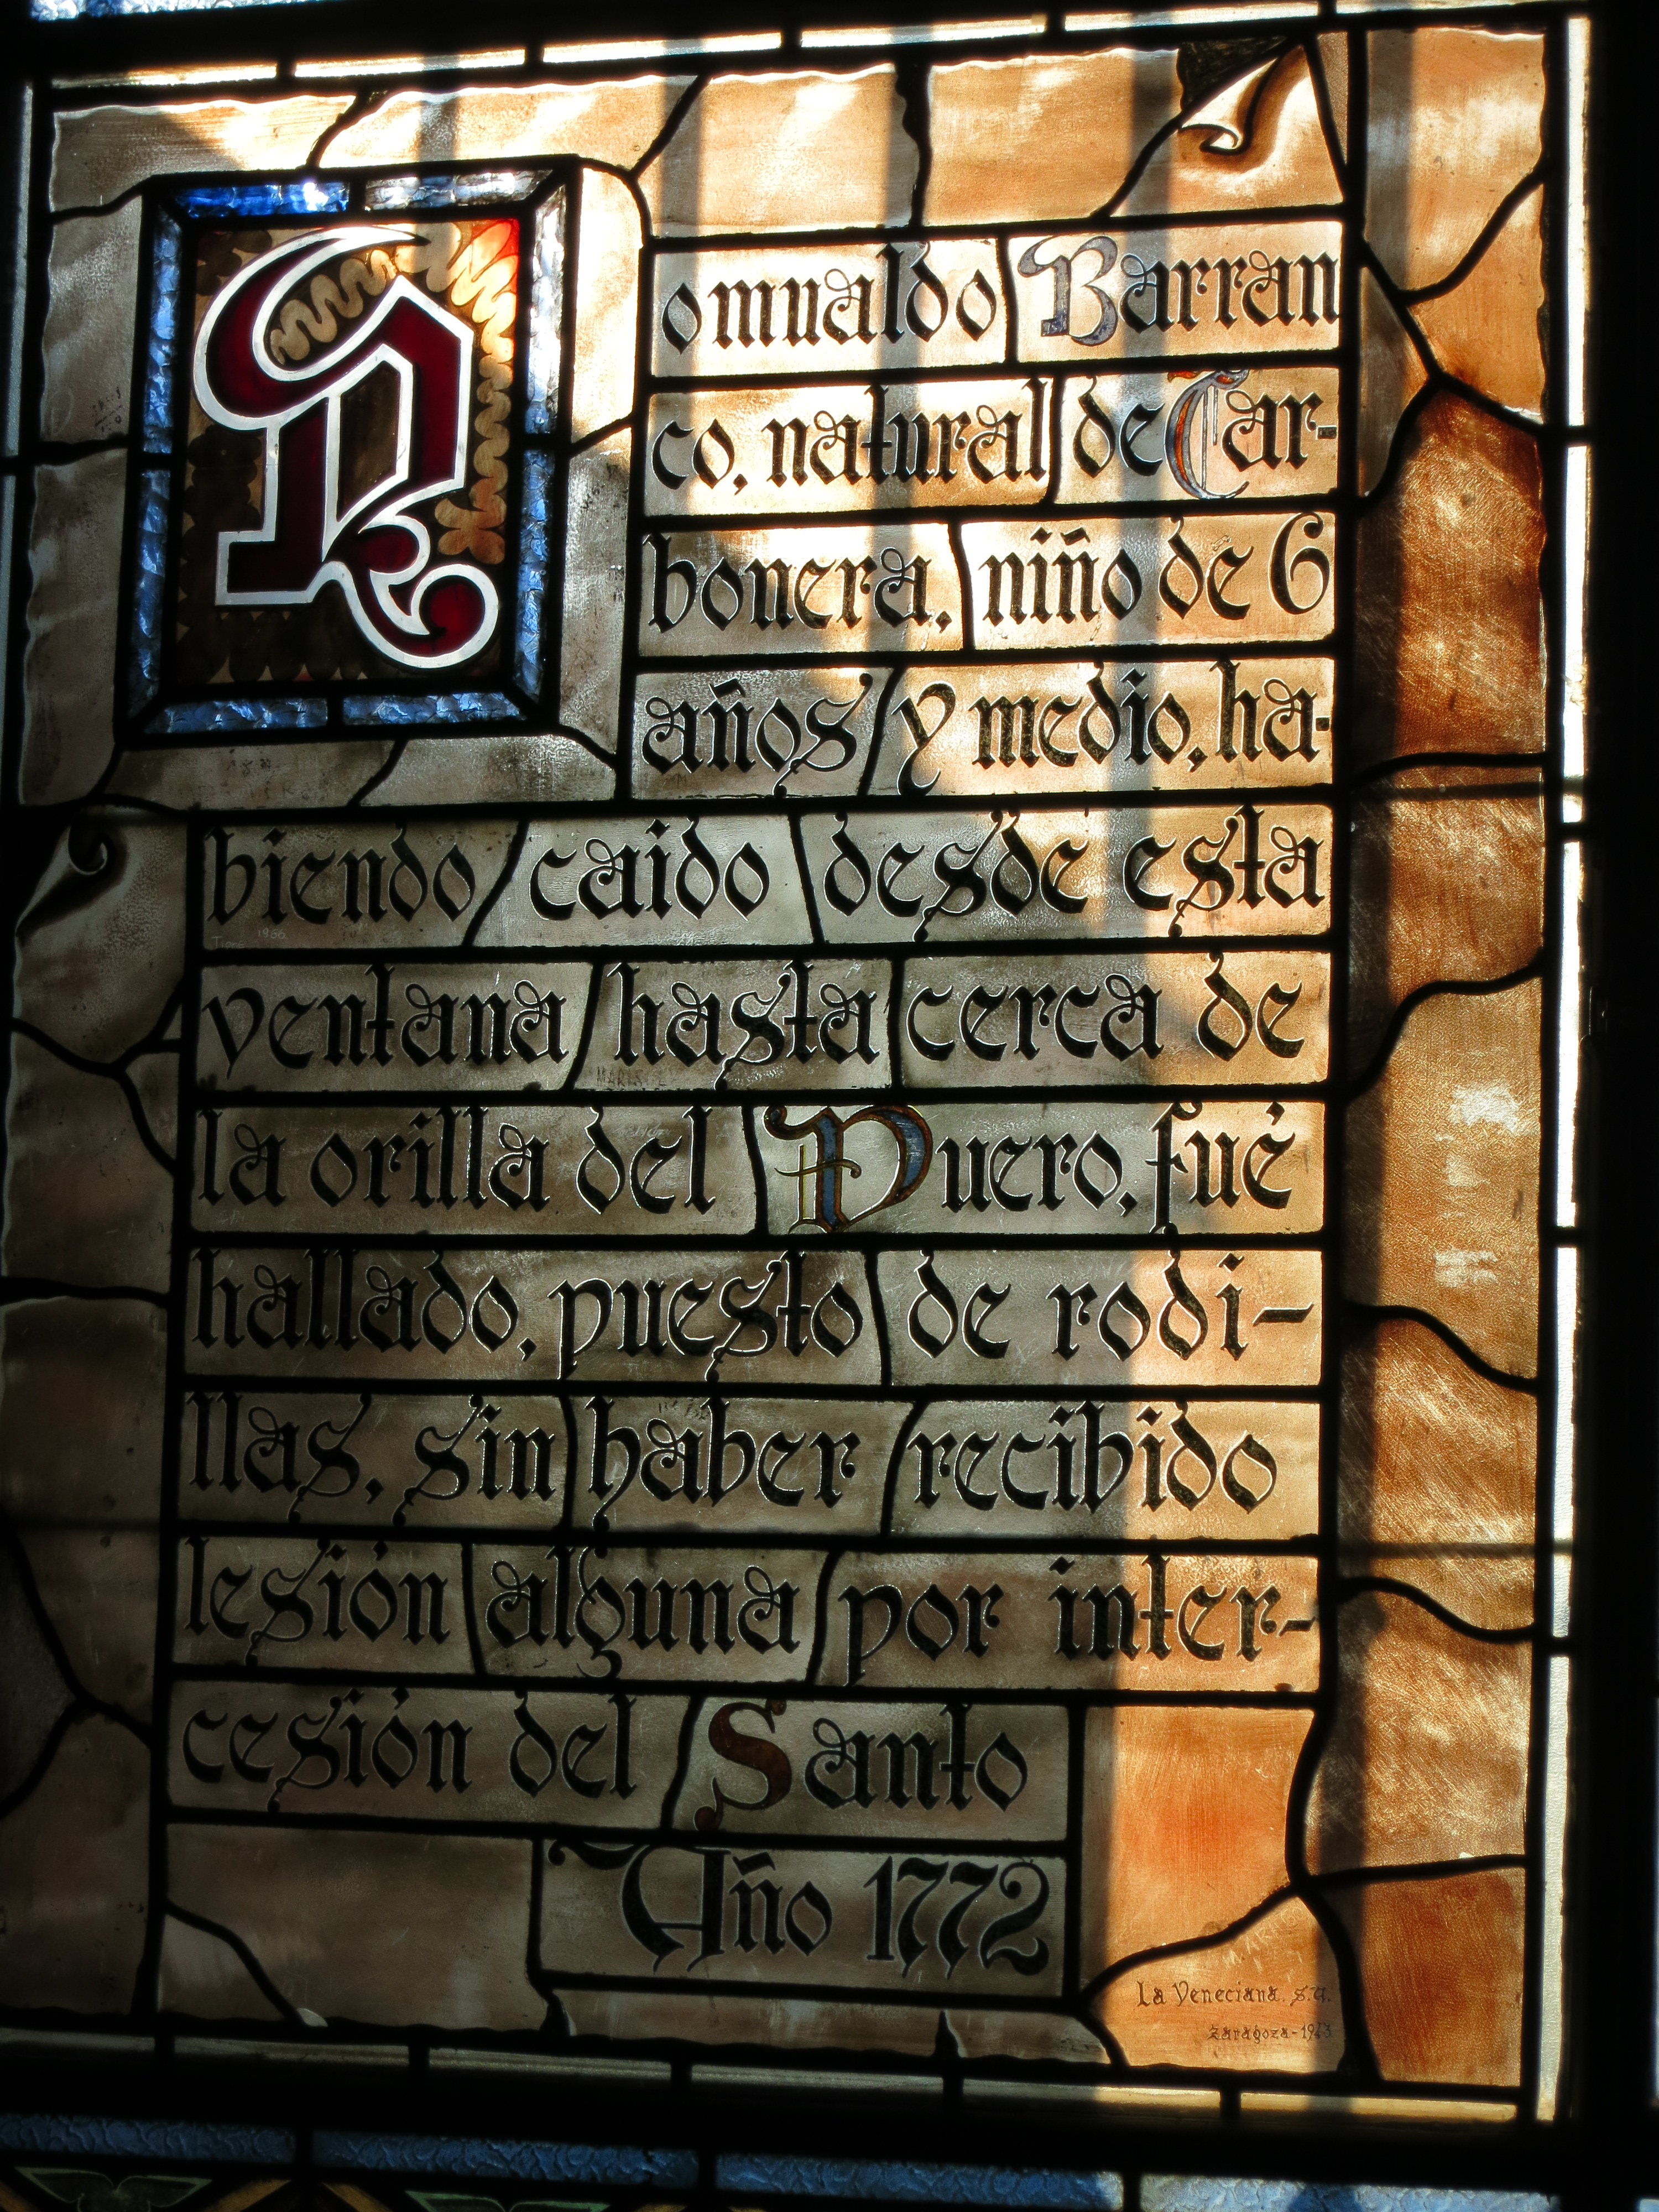 Romualdo Barran
co, natural de Car-
bonera, niño de 6
años y medio, ha-
biendo caido desde esta
ventana hasta cerca de
la orilla del Duero, fué
hallado, puesto de rodi-
llas, sin haber recibido
lesión alguna por inter-
cesión del Santo
Año 1772
La Veneciana. S.A.
Zaragoza-